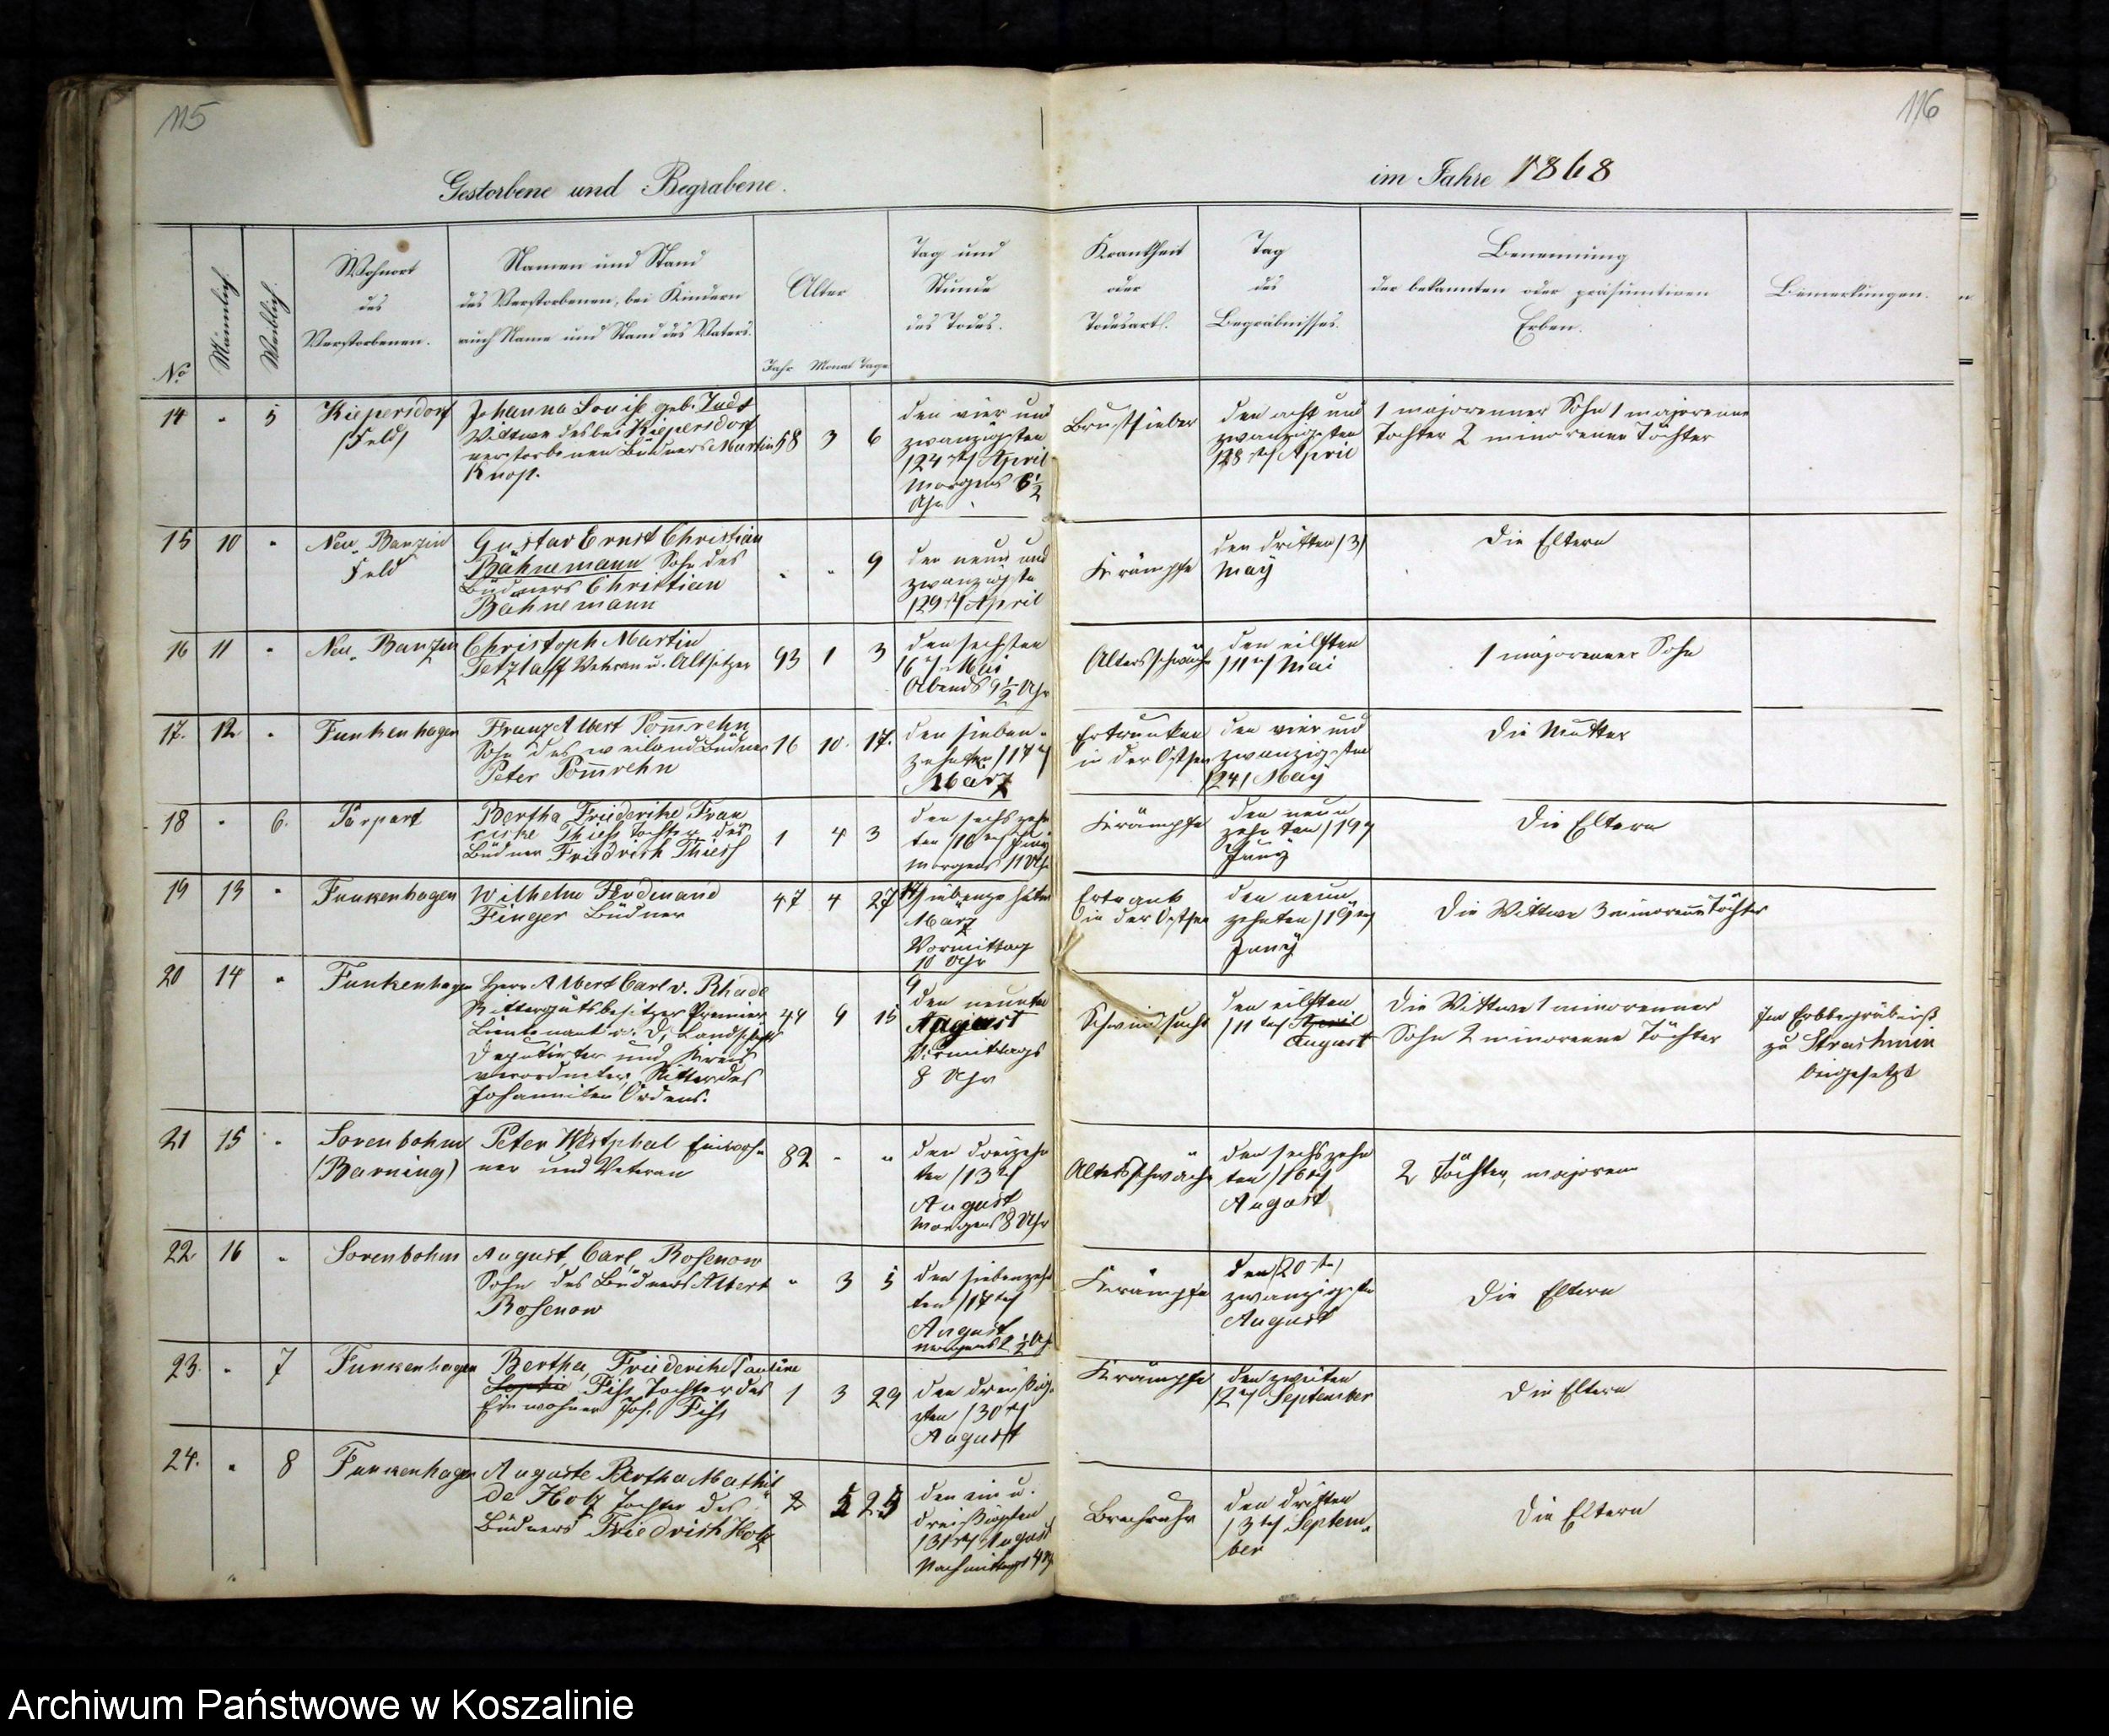 115
116
Gestorbene und Begrabene.
im Jahre 1868
No
Männlich.
Weiblich.
Wohnort
des
Verstorbenen.
Namen und Stand
des Verstorbenen, bei Kindern
auch Name und Stand des Vaters.
Alter
Jahr Monat Tage
Tag und
Stunde
des Todes.
Krankheit
oder
Todesart.
Tag
des
Begräbnisses.
Benennung
der bekannten oder präsumtiven
Erben.
Bemerkungen.
14 " 5
Kiepersdorf
/Feld/
Johanna Louise geb.
Wittwe des bei Kiepersdorf
verstorbenen Büdners Martin
Knop.
58 3 6
den vier und
zwanzigsten
/24st/ April
Morgens 6½
Uhr
Brustfieber
den acht und
zwanzigsten
/28st/ April
1 majorenner Sohn 1 majorenne
Tochter 2 minorenne Töchter
15 10 "
Neu-Banzin
Feld
Gustav Ernst Christian
Bähnemann Sohn des
Büdners Christian
Bähnemann
" " 9
den neun und
zwanzigste
/29st/ April
Krämpfe
den dritten /3/
May
Die Eltern
16 11 "
Neu-Banzin
Christoph Martin
Tetzlaff Veteran u. Altsitzer
93 1 3
den sechsten
/6t/ Mai
Abends 9½ Uhr
Altersschwäche
den eilften
/11t/ Mai
1 majorenner Sohn
17. 12 "
Funkenhagen
Franz Albert Pom̅rehn
Sohn des weiland Büdner
Peter Pom̅rehn
16 10. 17.
den sieben-
zehnten /17t/
März
Ertrunken
in der Ostsee
den vier und
zwanzigsten
/24/ May
Die Mutter
18 " 6.
Parpart
Bertha Friederike Fran
ciske Thiess Tochter des
Büdner Friedrich Thiess
1 4 3
den sechszehn
ten /16ten/ Juny
morgens 11 Uhr
Krämpfe
den neun
zehnten /19/
Juny
Die Eltern
19 13 "
Funkenhagen
Wilhelm Ferdinand
Finger Büdner
47 4 27
März
Vormittag
10 Uhr
Ertrank
in der Ostsee
den neun
zehnten /19ten/
Juny
Die Wittwe 3 minorenne Töchter
20 14 "
Funkenhagen
Herr Albert Carl v. Rhade
Rittergutsbesitzer Premier
Lieutenant a. D., Landschafts
Deputirter und Kreis
verordneter, Ritter des
Johanniter Ordens.
44 9 15
9
den neunten
August
Vormittags
8 Uhr
Schwindsucht
den eilften
/11ten/ April
August
Die Wittwe 1 minorenner
Sohn 2 minorenne Töchter
Im Erbbegräbniß
zu Strachmin
beigesetzt
21 15 "
Sorenbohm
(Barning)
Peter Westphal Einwoh-
ner und Veteran
82 " "
den dreizehn
ten /13ten/
August
Morgens 8 Uhr
Altersschwäche
den sechszehn
ten /16ten/
August
2 Töchter, majorenn
22 16 "
Sorenbohm
August, Carl, Rosenow
Sohn des Büdners Albert
Rosenow
" 3 5
den siebenzehn
ten /17ten/
August
morgens 2½ Uhr
Krämpfe
den /20ste/
zwanzigste
August
Die Eltern
23. " 7
Funkenhagen
Bertha, Friederike Pauline
Sophie Fiss Tochter des
Einwohner Joh. Fiss
1 3 29
den dreißig-
sten /30st/
August
Krämpfe
den zweiten
/2t/ September
Die Eltern
24. " 8
Funkenhagen
Auguste Bertha Mathil
de Holz Tochter des
Büdners Friedrich Holz
2 5 25
den ein u.
dreißigsten
/31st/ August
Nachmittags 4 Uhr
Brechruhr
den dritten
/3ten/ Septem-
ber
Die Eltern
Archiwum Państwowe w Koszalinie